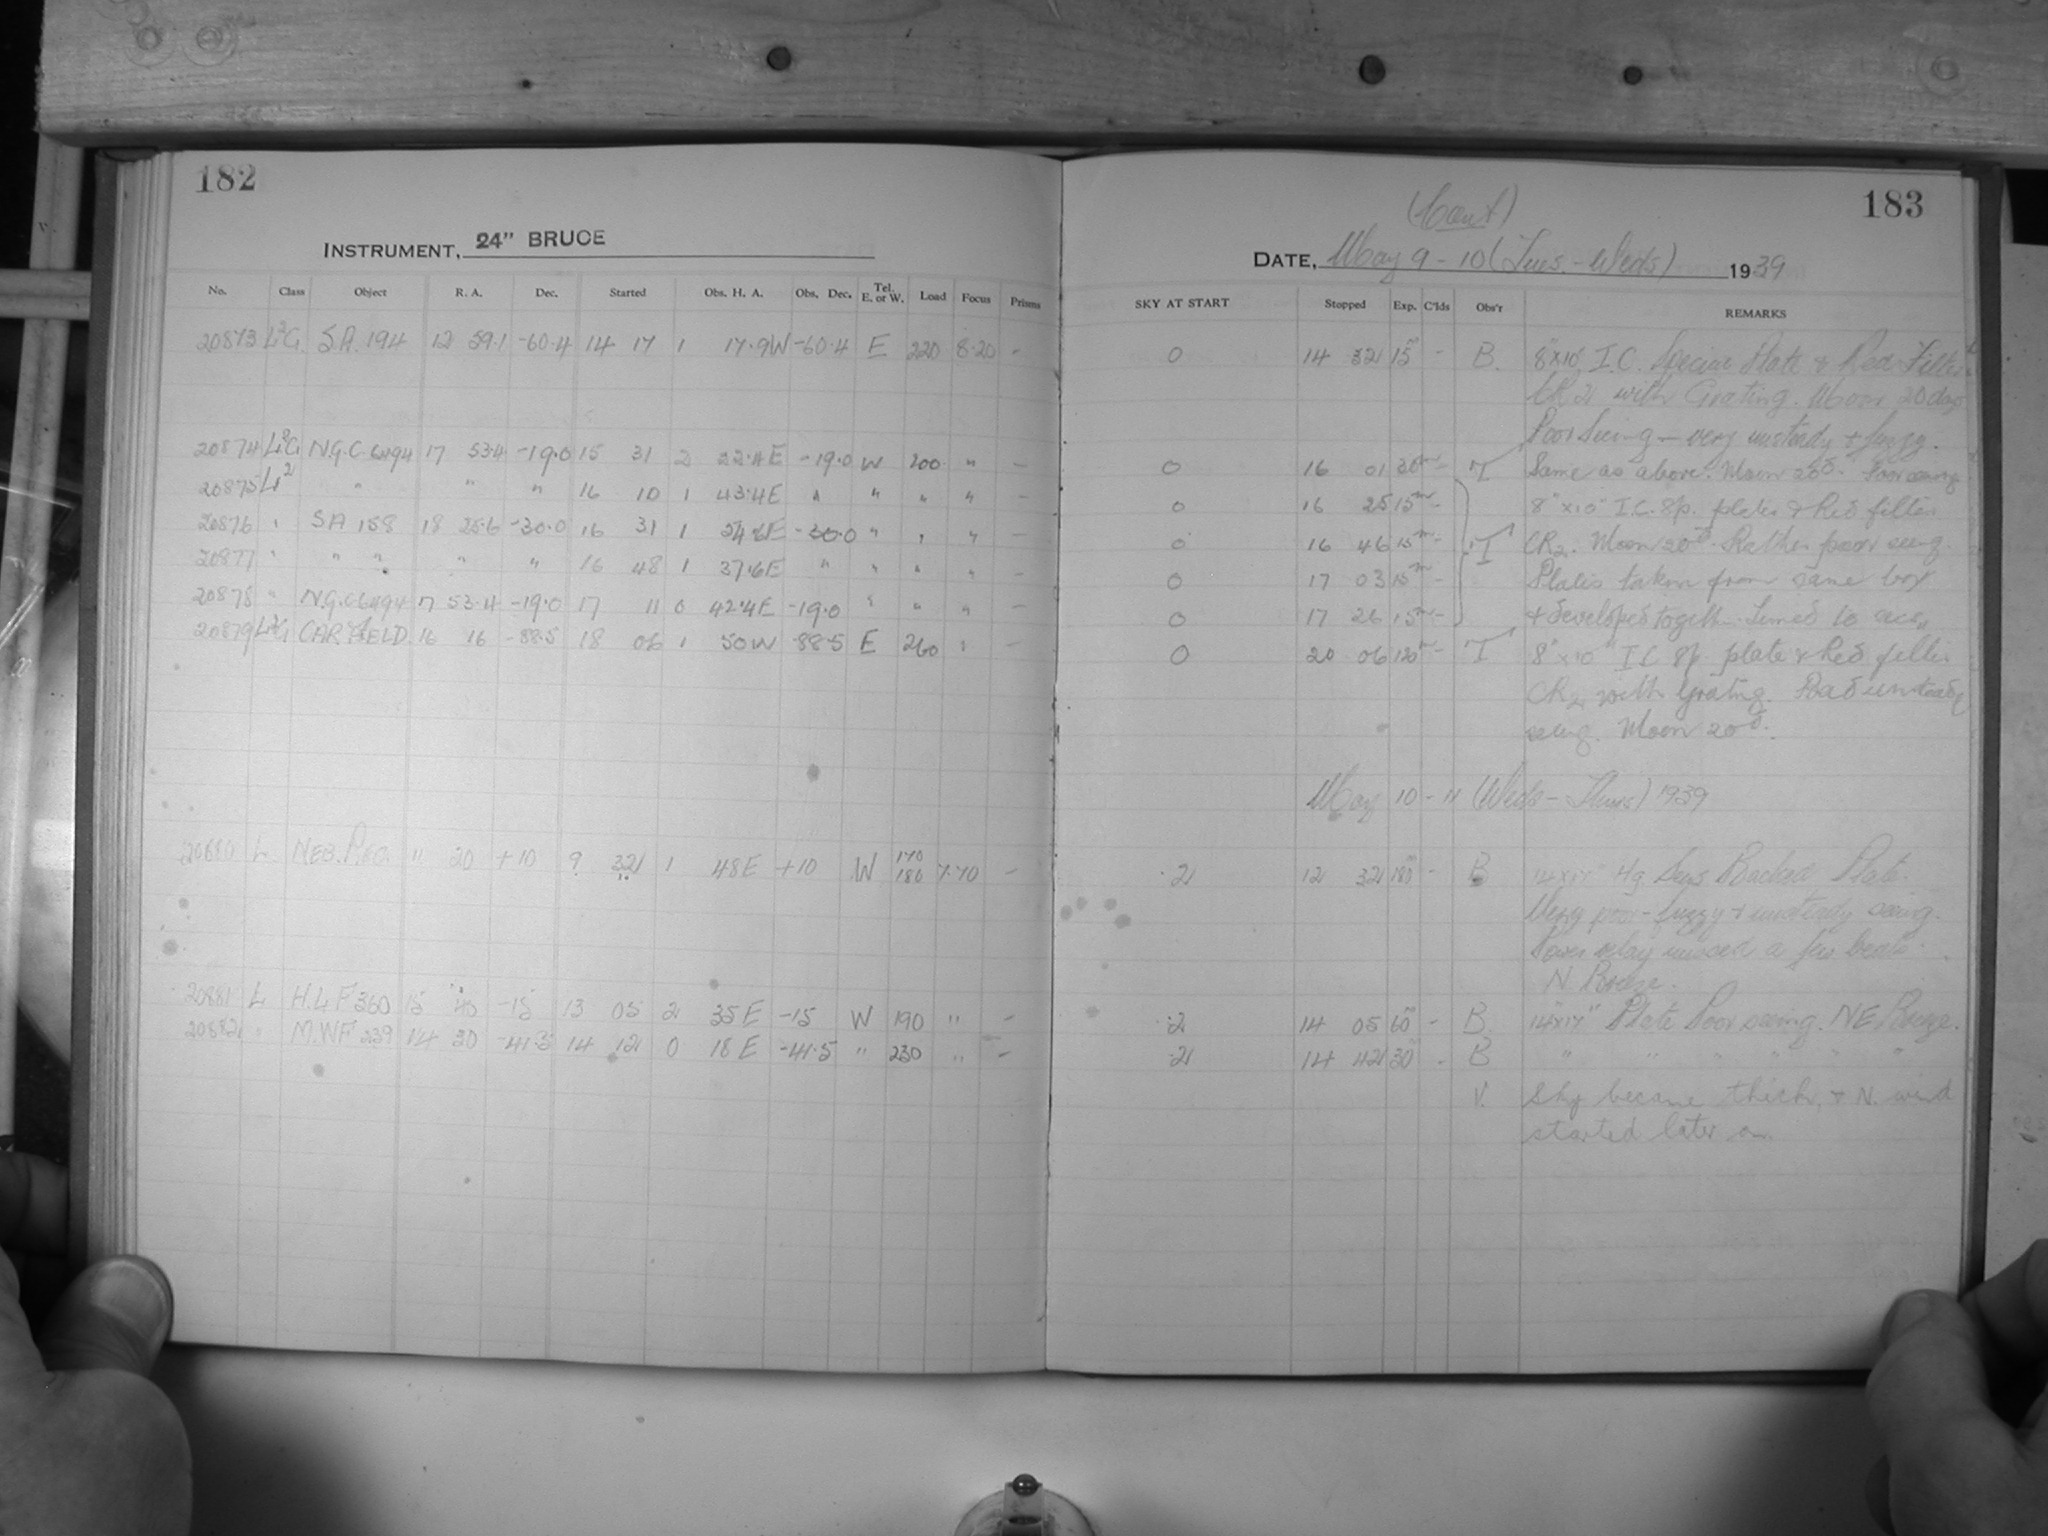 182
INSTRUMENT, 24" BRUCE
No. Class Object R. A. Dec. Started Obs. H. A. Obs. Dec. Tel. E. or W. Load Focus Prisms
20873 L²G. S.A. 194 12 59.1 -60.4 14 17 1 17.9W -60.4 E 220 8.20 -
20874 N.G.C. 6494 17 53.4 -19.0 15 31 2 22.4E -19.0 W 200 " -
20875 L² " " " 16 10 1 43.4E " " " " -
20876 " SA 158 18 25.6 -30.0 16 31 1 -30.0 " " " -
20877 " " " " " 16 48 1 37.6E " " " " -
20878 " N.G.C 6494 17 53.4 -19.0 17 11 0 42.4E -19.0 " " " -
20879 CAP. FIELD. 16 16 -88.5 18 06 1 50W -88.5 E 260 " -
20880 L NEB. REG. 11 20 +10 9 32 1 48E +10 W 170 180 7.70 -
20881 L H.L.F 360 15 40 -15 13 05 2 35E -15 W 190 " -
20882 " M.W.F 239 14 30 -41.5 14 12 0 18E -41.5 " 230 " -
183
(Cont)
DATE, May 9-10 (Tues.-Weds) 1939
SKY AT START Stopped Exp. C'lds Obs'r REMARKS
0 14 32 15ᵐ - B. 8"x10" I.C. Special Plate & Red Filter
CR2 with Grating. Moon 20 days
Poor Seeing - very unsteady & fuzzy.
0 16 01 30ᵐ - T Same as above. Moon 20ᵈ. Poor seeing
0 16 25 15ᵐ - 8"x10" I.C. Sp. plates & Red filter
0 16 46 15ᵐ - T CR₂. Moon 20ᵈ. Rather poor seeing.
0 17 03 15ᵐ - Plates taken from same box
0 17 26 15ᵐ - & developed together. Timed to
0 20 06 120ᵐ - T 8"x10" I.C. Sp. plate & Red filter
CR₂ with grating. Bad unsteady
seeing. Moon 20ᵈ.
May 10-11 (Weds-Thurs) 1939
2 12 32 180ᵐ - B 14x17" Hg Sens Backed Plate
Very poor - fuzzy & unsteady seeing.
relay missed a few beats.
N. Breeze.
2 14 05 60ᵐ - B. 14"x17" Plate Poor seeing. NE Breeze.
2 14 42 30ᵐ - B " " " " " "
V. Sky became thick, & N. wind
started later on